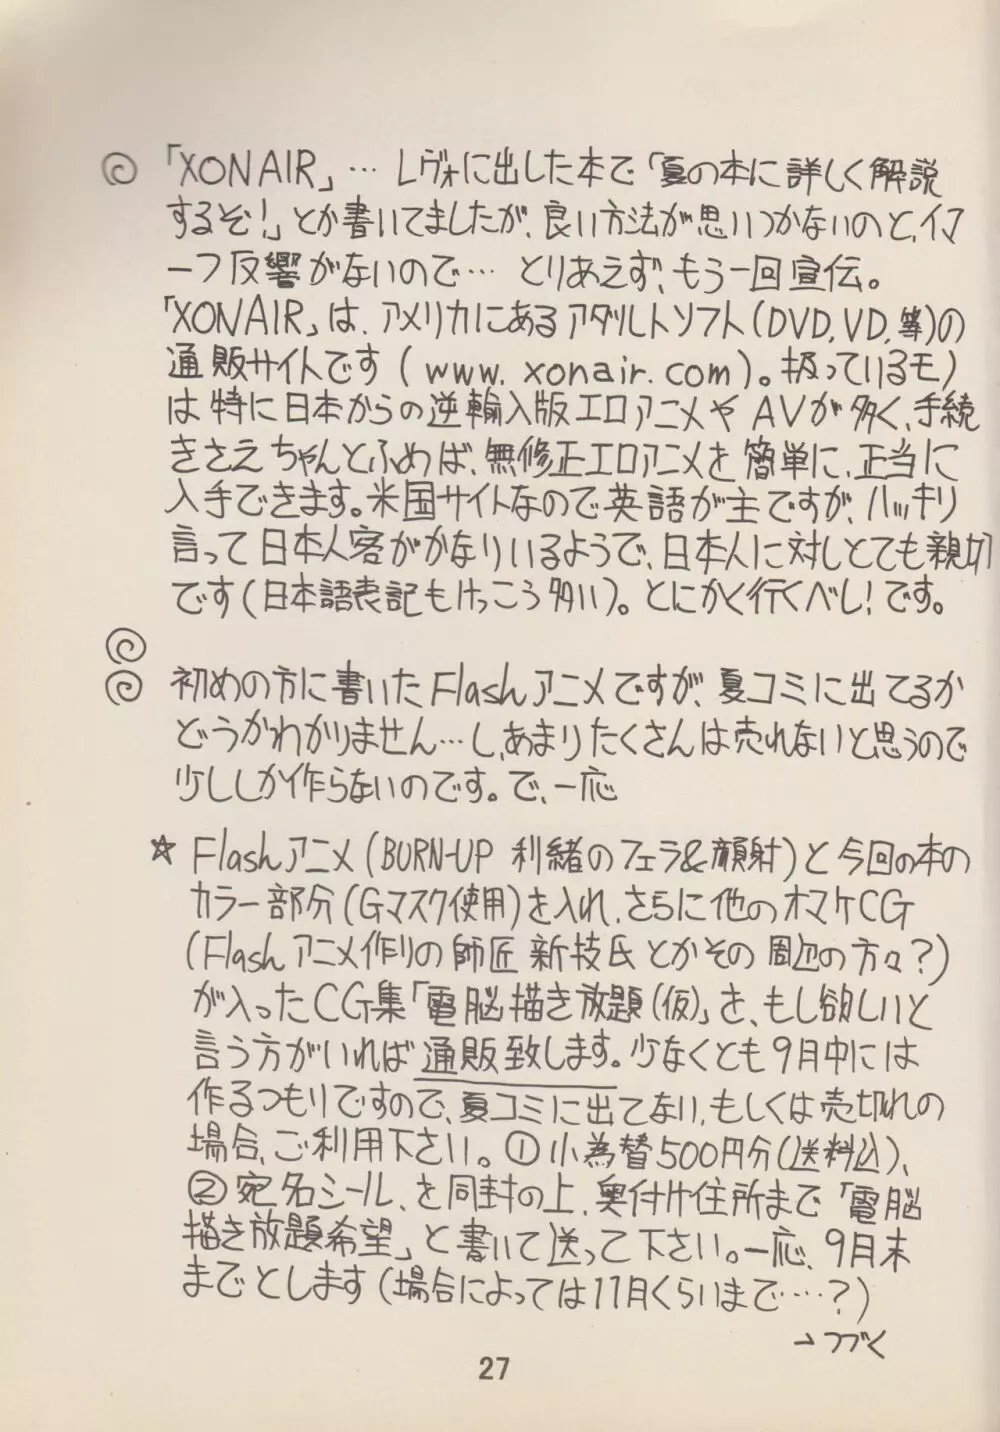 「XONAIR」… レヴォに出した本で「夏の本に詳しく解説
するぞ!」とか書いてましたが、良い方法が思いつかないのと、イマ
一つ反響がないので… とりあえず、もう一回宣伝。
「XONAIR」は、アメリカにあるアダルトソフト(DVD,VD,等)の
通販サイトです(www.xonair.com)。扱っているモノ
は特に日本からの逆輸入版エロアニメやAVが多く、手続
きさえちゃんとふめば、無修正エロアニメを簡単に、正当に
入手できます。米国サイトなので英語が主ですが、ハッキリ
言って日本人客がかなりいるようで、日本人に対しとても親切
です(日本語表記もけっこう多い)。とにかく行くべし!です。
初めの方に書いたFlashアニメですが、夏コミに出てるか
どうかわかりません…し、あまりたくさんは売れないと思うので
少ししか作らないのです。で、一応
☆ Flashアニメ(BURN-UP 利緒のフェラ&顔射)と今回の本の
カラー部分(Gマスク使用)を入れ、さらに他のオマケCG
(Flashアニメ作りの師匠 新技氏とかその周辺の方々?)
が入ったCG集「電脳描き放題(仮)」を、もし欲しいと
言う方がいれば通販致します。少なくとも9月中には
作るつもりですので、夏コミに出てない、もしくは売切れの
場合、ご利用下さい。①小為替500円分(送料込)、
②宛名シール、を同封の上、奥付け住所まで「電脳
描き放題希望」と書いて送って下さい。一応、9月末
までとします(場合によっては11月くらいまで……?)
→つづく
27